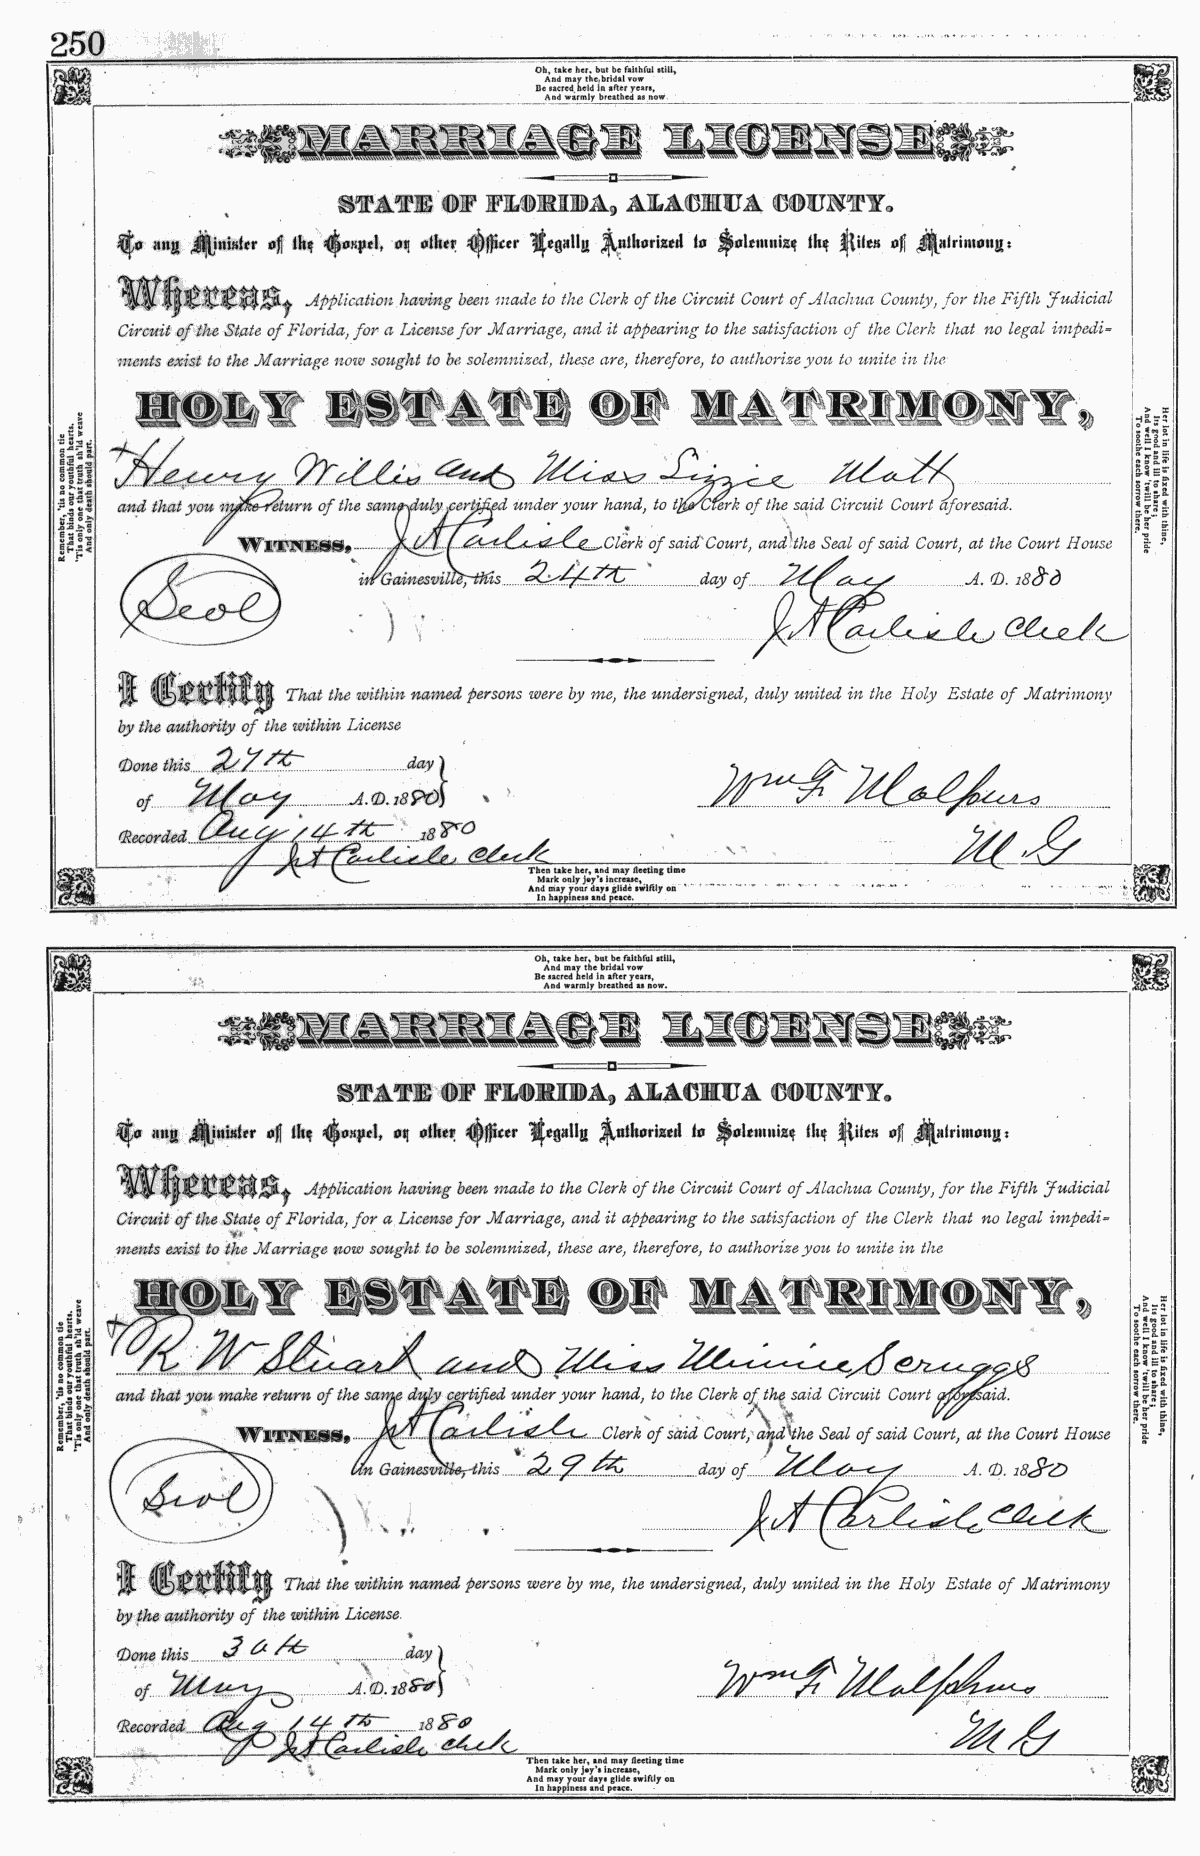 250
Oh, take her, but be faithful still,
And may the bridal vow
Be sacred held in after years,
And warmly breathed as now.
MARRIAGE LICENSE
STATE OF FLORIDA, ALACHUA COUNTY.
To any Minister of the Gospel, or other Officer Legally Authorized to Solemnize the Rites of Matrimony:
Whereas, Application having been made to the Clerk of the Circuit Court of Alachua County, for the Fifth Judicial
Circuit of the State of Florida, for a License for Marriage, and it appearing to the satisfaction of the Clerk that no legal impedi-
ments exist to the Marriage now sought to be solemnized, these are, therefore, to authorize you to unite in the
HOLY ESTATE OF MATRIMONY,
Henry Willis and Miss Lizzie Mott
and that you make return of the same duly certified under your hand, to the Clerk of the said Circuit Court aforesaid.
WITNESS, J A Carlisle Clerk of said Court, and the Seal of said Court, at the Court House
in Gainesville, this 24th day of May A. D. 1880
Seal
J A Carlisle Clerk
I Certify That the within named persons were by me, the undersigned, duly united in the Holy Estate of Matrimony
by the authority of the within License
Done this 27th day
of May A.D. 1880
Wm F. Malphurs
Recorded Aug 14th 1880
M. G
J A Carlisle Clerk
Then take her, and may fleeting time
Mark only joy's increase,
And may your days glide swiftly on
In happiness and peace.
Remember, 'tis no common tie
That binds our youthful hearts,
'Tis only one that truth sh'ld weave
And only death should part.
Her lot in life is fixed with thine,
Its good and ill to share;
And well I know 'twill be her pride
To soothe each sorrow there.
Oh, take her, but be faithful still,
And may the bridal vow
Be sacred held in after years,
And warmly breathed as now.
MARRIAGE LICENSE
STATE OF FLORIDA, ALACHUA COUNTY.
To any Minister of the Gospel, or other Officer Legally Authorized to Solemnize the Rites of Matrimony:
Whereas, Application having been made to the Clerk of the Circuit Court of Alachua County, for the Fifth Judicial
Circuit of the State of Florida, for a License for Marriage, and it appearing to the satisfaction of the Clerk that no legal impedi-
ments exist to the Marriage now sought to be solemnized, these are, therefore, to authorize you to unite in the
HOLY ESTATE OF MATRIMONY,
R W Stuart and Miss Minnie Scruggs
and that you make return of the same duly certified under your hand, to the Clerk of the said Circuit Court aforesaid.
WITNESS, J A Carlisle Clerk of said Court, and the Seal of said Court, at the Court House
in Gainesville, this 29th day of May A. D. 1880
Seal
J A Carlisle Clerk
I Certify That the within named persons were by me, the undersigned, duly united in the Holy Estate of Matrimony
by the authority of the within License.
Done this 30th day
of May A.D. 1880
Wm F. Malphurs
Recorded Aug 14th 1880
M G
J A Carlisle Clerk
Then take her, and may fleeting time
Mark only joy's increase,
And may your days glide swiftly on
In happiness and peace.
Remember, 'tis no common tie
That binds our youthful hearts,
'Tis only one that truth sh'ld weave
And only death should part.
Her lot in life is fixed with thine,
Its good and ill to share;
And well I know 'twill be her pride
To soothe each sorrow there.